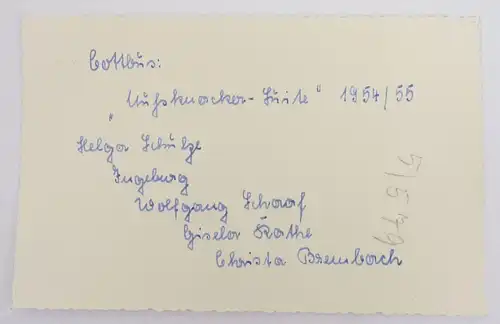 Cottbus:
„Nußknacker-Suite" 1954/55
Helga Schulze
Ingeburg
Wolfgang Schaaf
Gisela Kathe
Christa Brembach
5/579